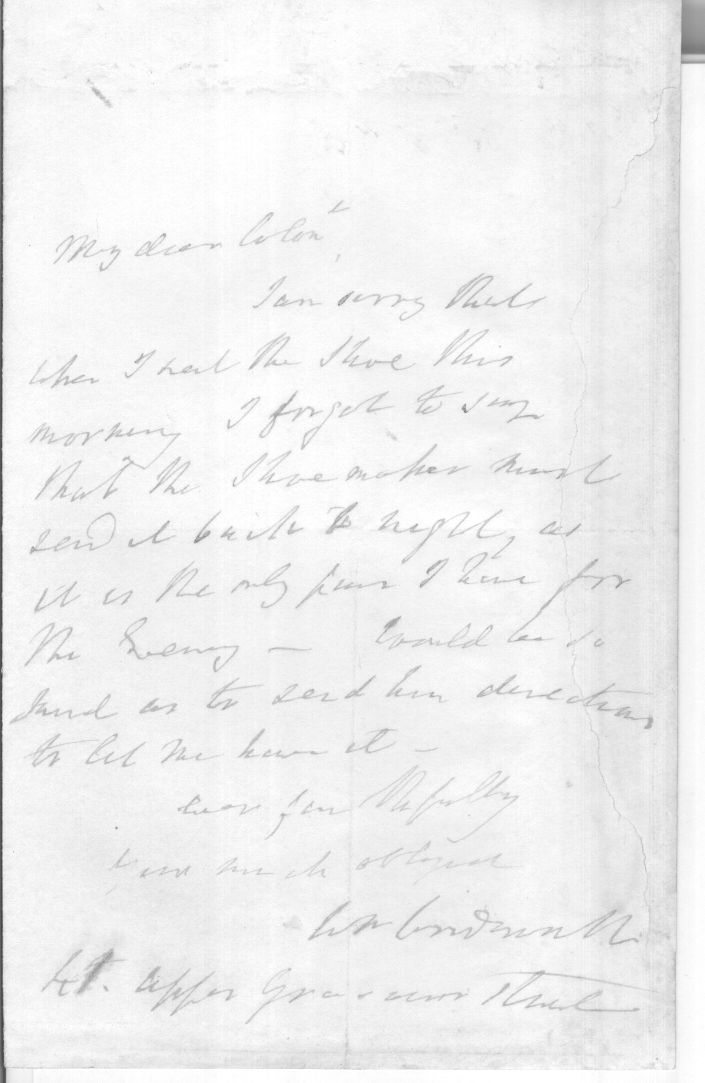 My dear Colonl,
I am sorry that
when I sent the Shoe this
morning I forgot to say
that the Shoemaker must
send it back to night, as
it is the only pair I have for
the Evening — Would be so
kind as to send him directions
to let me have it —
ever
your much obliged
Wm
47. Upper Grosvenor Street